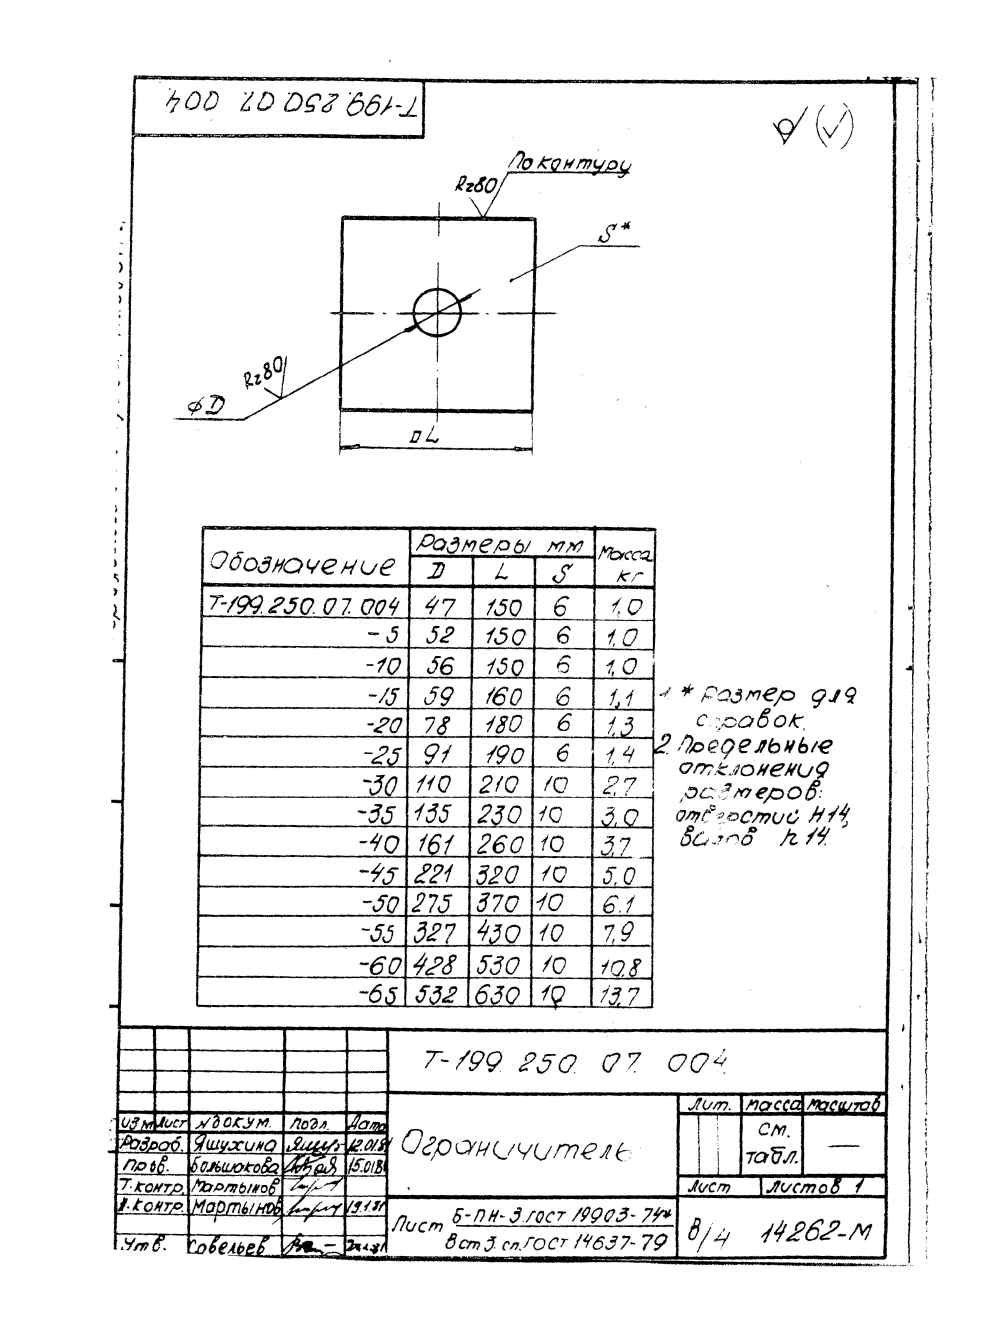 Т-199.250.07.004
По контуру
Rz80
S*
Rz80
⌀D
□L
Обозначение Размеры мм Масса кг
D L S
Т-199.250.07.004 47 150 6 1,0
-5 52 150 6 1,0
-10 56 150 6 1,0
-15 59 160 6 1,1
-20 78 180 6 1,3
-25 91 190 6 1,4
-30 110 210 10 2,7
-35 135 230 10 3,0
-40 161 260 10 3,7
-45 221 320 10 5,0
-50 275 370 10 6.1
-55 327 430 10 7,9
-60 428 530 10 10,8
-65 532 630 10 13,7
1 * Размер для
справок.
2. Предельные
отклонения
размеров:
отверстий H14,
валов h14.
Т-199. 250. 07. 004
Лит. Масса Масштаб
см. табл. —
Лист Листов 1
Изм Лист № докум. Подп. Дата
Разраб. Яшухина
Пров. Большакова
Т.контр. Мартынов
Н.контр. Мартынов
Утв. Совельев
Ограничитель
Лист Б-ПН-3 гост 19903-74*
Вст 3. сп. ГОСТ 14637-79
В/4 14262-М